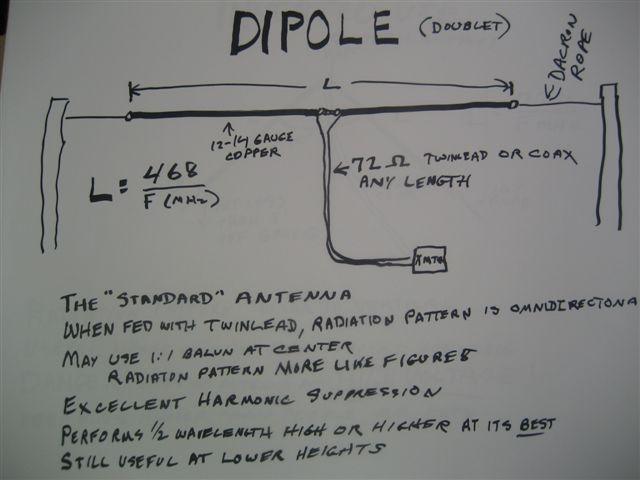 DIPOLE (DOUBLET)
L
DACRON
ROPE
12-14 GAUGE
COPPER
72 Ω TWINLEAD OR COAX
ANY LENGTH
L = 468
F (MHz)
XMTR
THE "STANDARD" ANTENNA
WHEN FED WITH TWINLEAD, RADIATION PATTERN IS OMNIDIRECTIONA
MAY USE 1:1 BALUN AT CENTER
RADIATON PATTERN MORE LIKE FIGURE 8
EXCELLENT HARMONIC SUPPRESSION
PERFORMS 1/2 WAVELENGTH HIGH OR HIGHER AT ITS BEST
STILL USEFUL AT LOWER HEIGHTS